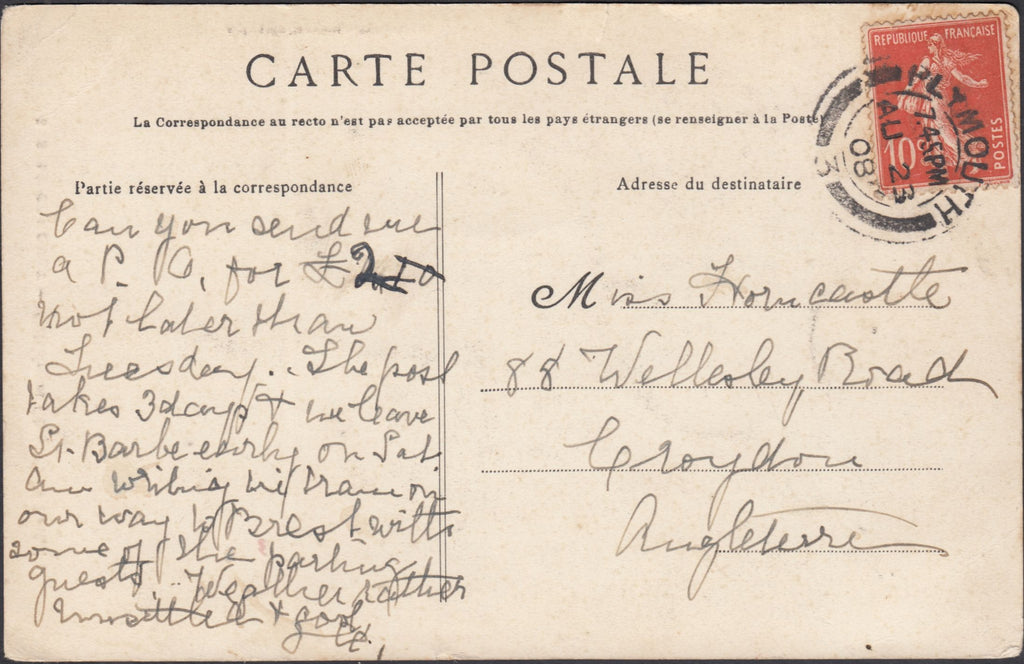 CARTE POSTALE
La Correspondance au recto n'est pas acceptée par tous les pays étrangers (se renseigner à la Poste)
REPUBLIQUE FRANÇAISE
10
POSTES
PLYMOUTH
7.45PM
AU 23
08
3
Partie réservée à la correspondance
Can you send me
a P. O. for £2
not later than
Tuesday. The post
takes 3 days & we leave
St. Barbe early on Sat.
Am writing in train on
our way to Brest with
some of the parting
guests. Weather rather
unsettled &
Adresse du destinataire
Miss Horncastle
88 Wellesley Road
Croydon
Angleterre